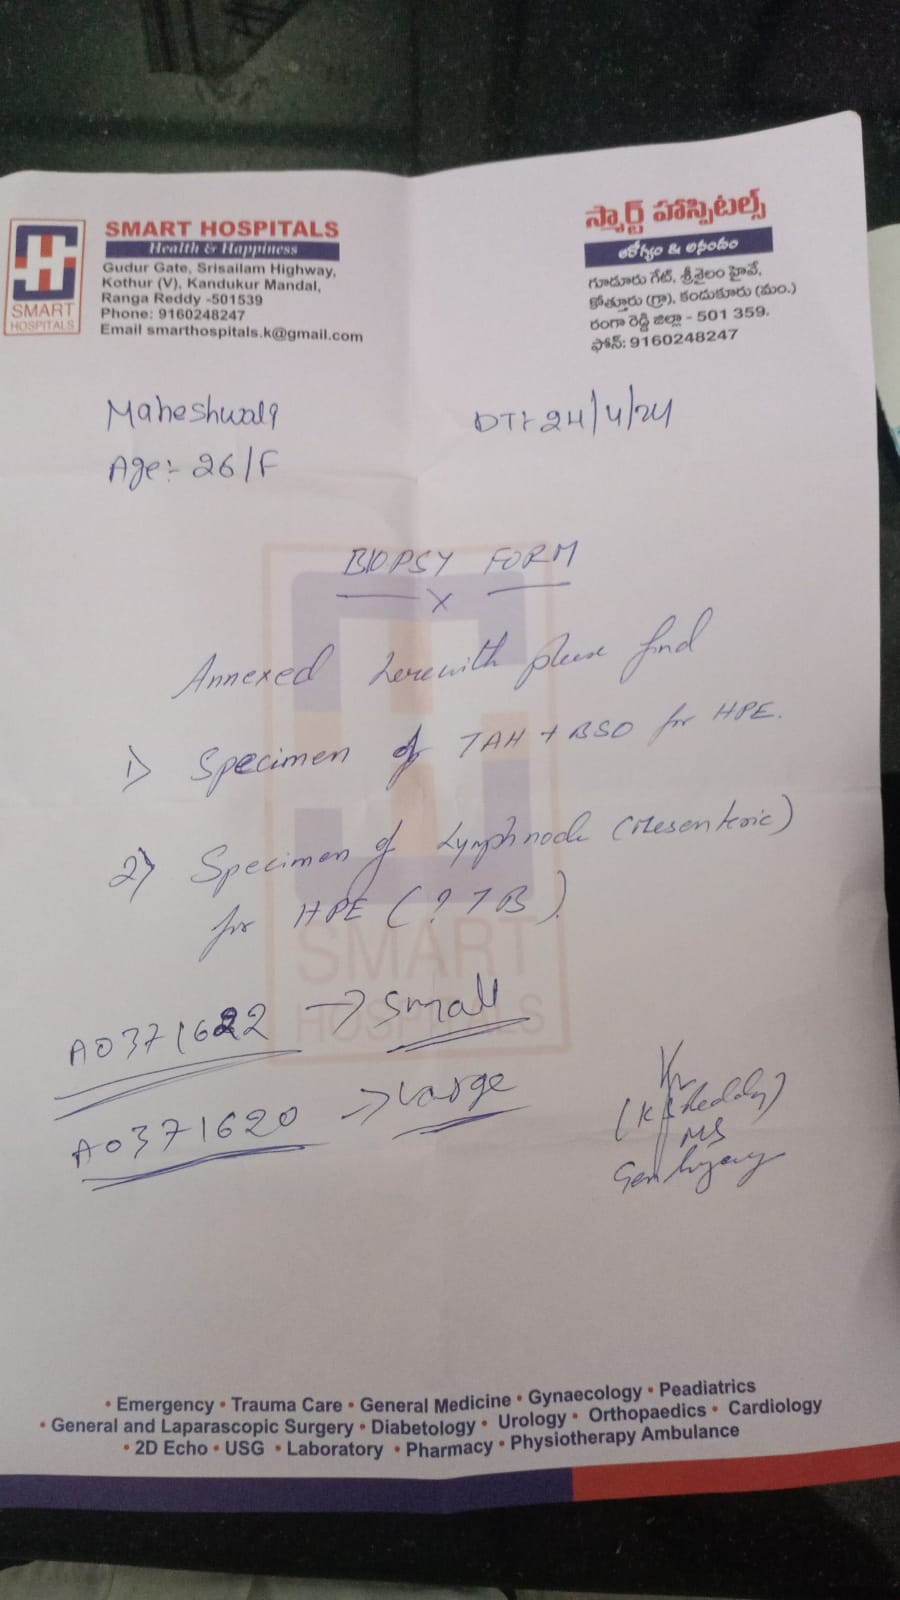 SMART HOSPITALS
Health & Happiness
Gudur Gate, Srisailam Highway,
Kothur (V), Kandukur Mandal,
Ranga Reddy -501539
Phone: 9160248247
Email smarthospitals.k@gmail.com
SMART
HOSPITALS
స్మార్ట్ హాస్పిటల్స్
ఆరోగ్యం & ఆనందం
గూడూరు గేట్, శ్రీశైలం హైవే,
కోత్తూరు (గ్రా), కందుకూరు (మం.)
రంగా రెడ్డి జిల్లా - 501 359.
ఫోన్: 9160248247
DT:- 24/4/24
Age:- 26/F
BIOPSY FORM
x
Annexed herewith please find
1) Specimen of TAH + BSO for HPE.
2) Specimen of Lymphnode (Mesenteric)
for HPE (? TB).
SMART
HOSPITALS
A0371622 → Small
A0371620 → Large
Reddy)
MS
• Emergency • Trauma Care • General Medicine • Gynaecology • Peadiatrics
• General and Laparascopic Surgery • Diabetology • Urology • Orthopaedics • Cardiology
• 2D Echo • USG • Laboratory • Pharmacy • Physiotherapy Ambulance